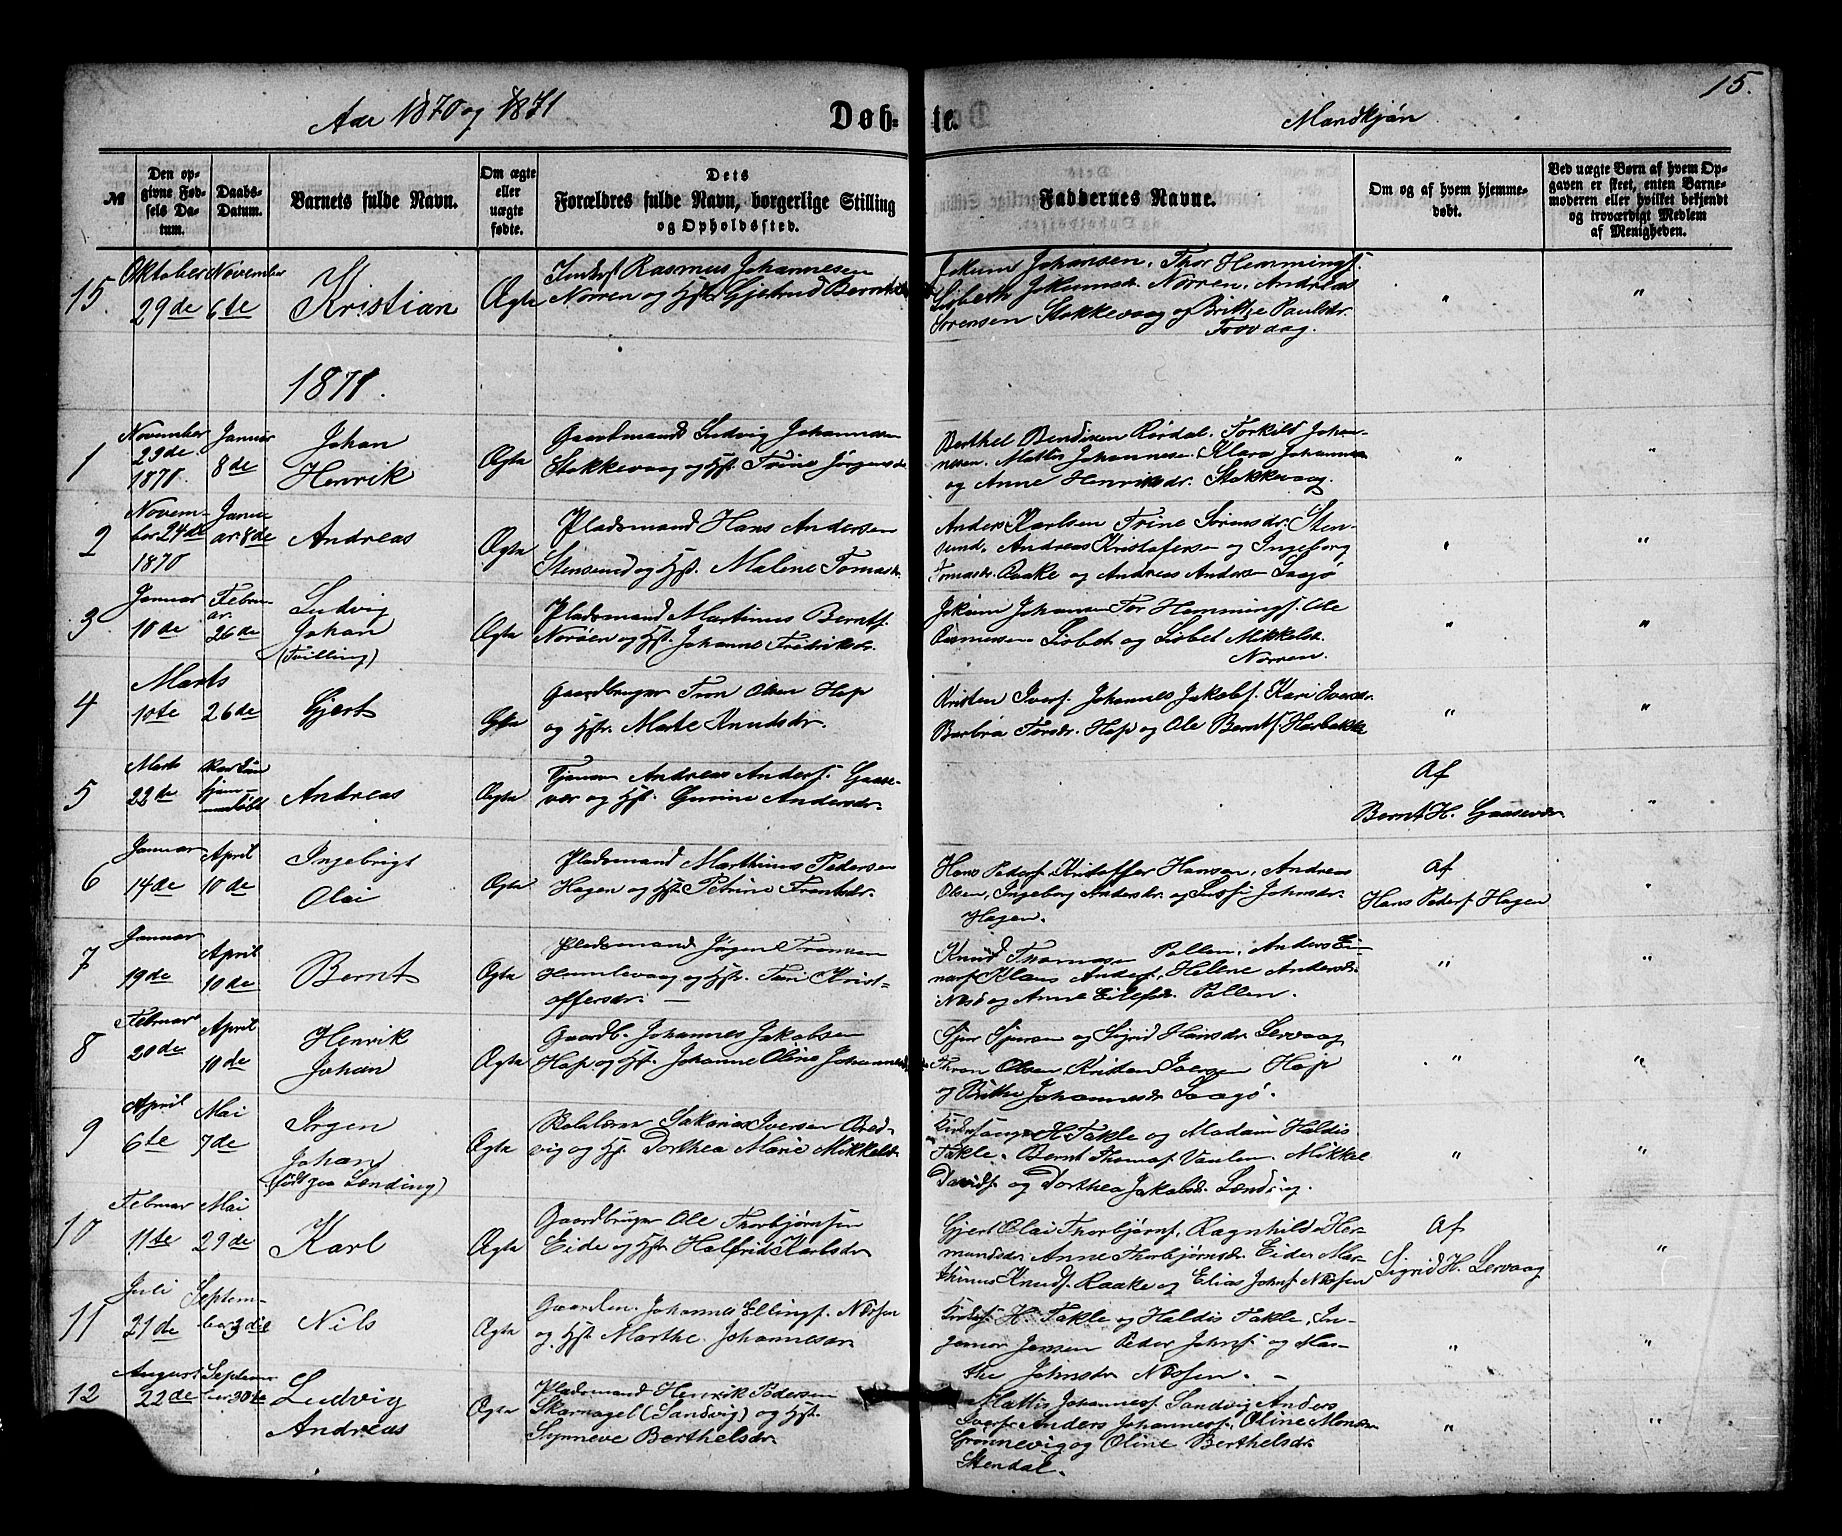 15.
Aar 1870 og 1871
Døb-
te.
Mandkjön
№
Den op-
givne Fød-
sels Da-
tum.
Daabs-
Datum.
Barnets fulde Navn.
Om ægte
eller
uægte
fødte.
Dets
Forældres fulde Navn, borgerlige Stilling
og Opholdssted.
Faddernes Navne.
Om og af hvem hjemme-
døbt.
Ved uægte Børn af hvem Op-
gaven er skeet, enten Barne-
moderen eller hvilket bekjendt
og troværdigt Medlem
af Menigheden.
15. Oktober 29de
November 6te
Kristian
Ægte
Rasmus Johannesen
Norren og Hst Gjertrud
Jokum Johansen, Thor Hemmings.
Lisbeth Jokumsdr. Norren, Andreas
Sørensen Stokkevaag og Brithe Paulsdr.
"
"
1871.
1
November
23de
1870.
Januar
8de
Johan
Henrik
Ægte
Gaardmand Ludvig Johannesen
Stokkevaag og Hst. Trine Jörgensdr
Berthel Bendixen Rördal. Torkild Johan-
nesen. Mattis Johannesen. Klara Johannes
og Anne Henriksdr. Stokkevaag.
"
"
2
Novem-
ber 24de
1870
Janu
ar 8de
Andreas
Ægte
Pladsmand Hans Andersen
Stensund og Hst. Malene Tomasdr.
Anders Karlsen Trine Sörensdr. Sten-
sund. Andreas Kristofersen og Ingeborg
Tomasdr. Raake og Andreas Andersen Laagö
"
"
3
Januar
18de
Februar
26de
Ludvig
Johan
(Tvilling)
Ægte
Pladsmand Martinus Bernts.
Norren og Hst. Johanne Fredriksdr.
Jokum Johansen Tor Hemmings. Ole
Rasmussen Lisbet og Lisbet Mikkelsdr.
Norren.
"
"
4
Marts
10te
26de
Gjert
Ægte
Gaardbruger Tron Olsen Hop
og Hst. Marte Knudsdr.
Kristen Ivers. Johannes Jakobs. Kari Iversdr.
Barbra Torsdr. Hop og Ole Bernts. Harbakke
"
"
5
Marts
22de
hjem-
medöbt
Andreas
Ægte
Tjener Andreas Anders. Gaase-
vær og Hst. Gurine Andersdr.
Af
Bernt H. Gaasevær
"
6
Januar
14de
April
10de
Ingebrigt
Olai
Ægte
Pladsmand Marthinus Pedersen
Hagen og Hst Petrine
Hans Peders. Kristoffer Hansen, Andreas
Olsen, Ingeborg Andersdr. og Lussi Johnsdr.
Hagen.
Af
Hans Peders. Hagen
"
7
Januar
19de
April
10de
Bernt
Ægte
Pladsmand Jørgen Transen
Humlevaag og Hst. Krist-
offersdr. —
Knud Thomasen Pollen. Anders Ei-
nars. Klaus Anders. Helene Andersdr.
og Anne Pollen.
"
"
8
Februar
20de
April
10de
Henrik
Johan
Ægte
Gaardb. Johannes Jakobsen
Hop og Hst. Johanne Oline
Sjur Sjursen og Sigrid Hansdr. Lervaag
Thron Olsen Kristen Iversen Hop
og Brithe Johannesdr. Laagö.
"
"
9
April
6te
Mai
7de
Irgen
Johan
(född paa Lending)
Ægte
Sakarias Iversen Bred-
vig og Hst. Dorthea Marie Mikkelsdr
Kirkesanger H Takle og Madam Haldis
Takle. Bernt Thomas. Vaulen. Mikkel
Davids. og Dorthea Jakobsdr.
"
"
10
Februar
11te
Mai
29de
Karl
Ægte
Gaardbruger Ole Thorbjørnsen
Eide og Hst. Halfrid Karlsdr
Gjert Olai Thorbjørns. Ragnhild Her-
mundsdr Anne Thorbjørnsdr. Eide Mar-
thinus Knuds. Raake og Elias Johns. Nessen
Af
Sigrid H. Lervaag
"
11
Juli
21de
Septem-
ber 3die
Nils
Ægte
Johannes Ellings. Nessen
og Hst Marthe. Johannesdr
H. Takle og Haldis Takle, In-
Jensen Peder Johns. og Mar-
the Johnsdr Nessen. —
"
"
12
August
22de
Septem
ber 30te
Ludvig
Andreas
Ægte
Pladsmand Henrik Pedersen
Skarnagel (Sandvig) og Hst.
Synneve Berthelsdr.
Mattis Johannes. Sandvig Anders
Ivers. Anders Johannes. Oline
Grönnevig og Oline Berthelsdr.
Stendal.
"
"